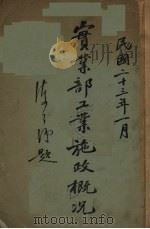 民國二十三年一月
實業部工業施政概況
陳公博題